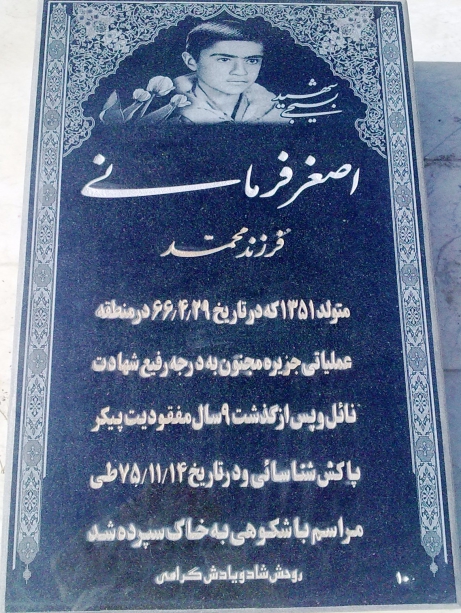 شهید
بسیجی
اصغر فرمانی
فرزند محمد
متولد ۱۳۵۱ که در تاریخ ۶۶/۴/۲۹ در منطقه
عملیاتی جزیره مجنون به درجه رفیع شهادت
نائل و پس از گذشت ۹ سال مفقودیت پیکر
پاکش شناسائی و در تاریخ ۷۵/۱۱/۱۴ طی
مراسم باشکوهی به خاک سپرده شد
روحش شاد و یادش گرامی
۱۰